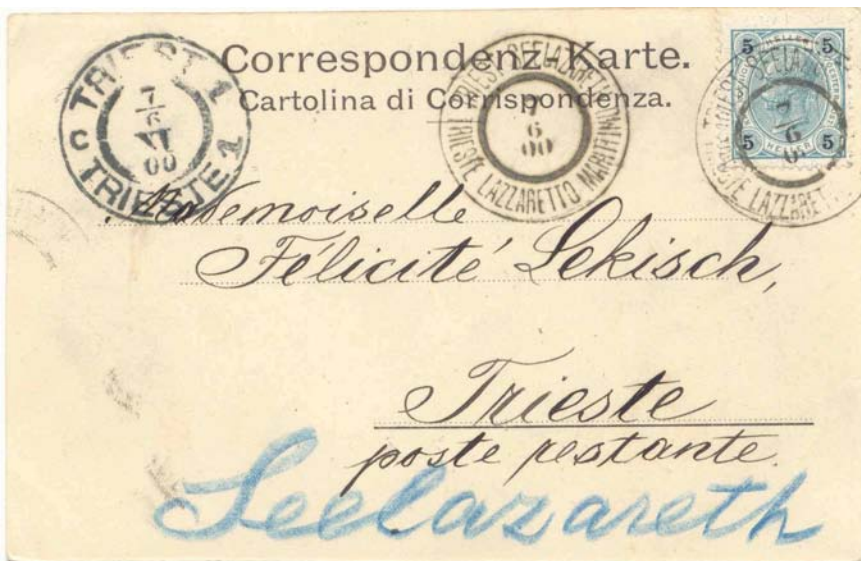 Correspondenz-Karte.
Cartolina di Corrispondenza.
TRIEST 1
7/6
VI
00
C TRIESTE 1
TRIEST SEELAZARETH
7
6
00
TRIESTE LAZZARETTO MARITTIMO
5 5
HELLER
5 5
SEELAZ
7/6
TRIESTE LAZZARET
Mademoiselle
Félicité Lekisch,
Trieste
poste restante.
Seelazareth